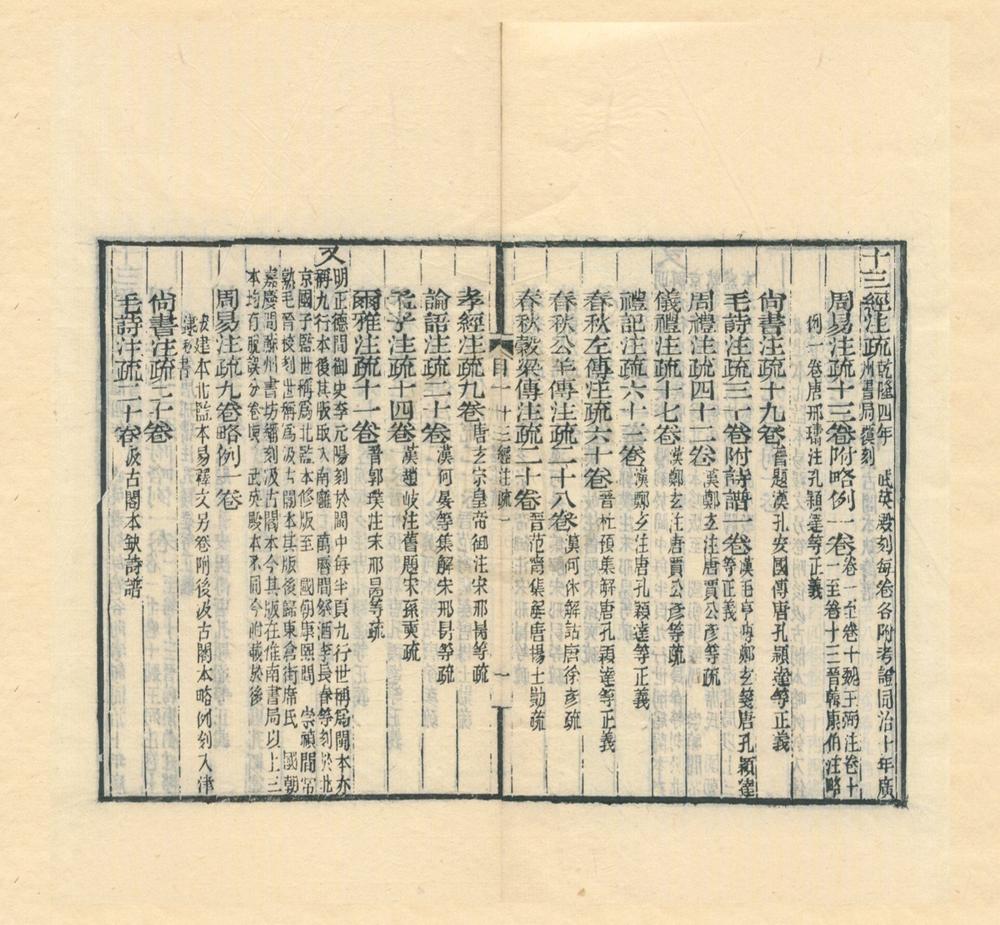 十三經注疏乾隆四年　武英殿刻每卷各附考證同治十年廣
州書局覆刻
周易注疏十三卷附略例一卷卷一至卷十魏王弼注卷十
一至卷十三晉韓康伯注略
例一卷唐邢璹注孔穎達等正義
尙書注疏十九卷舊題漢孔安國傳唐孔穎達等正義
毛詩注疏三十卷附詩譜一卷漢毛亨傳鄭玄箋唐孔穎達
等正義
周禮注疏四十二卷漢鄭玄注唐賈公彥等疏
儀禮注疏十七卷漢鄭玄注唐賈公彥等疏
禮記注疏六十三卷漢鄭玄注唐孔穎達等正義
春秋左傳注疏六十卷晉杜預集解唐孔穎達等正義
春秋公羊傳注疏二十八卷漢何休解詁唐徐彥疏
春秋穀梁傳注疏二十卷晉范甯集解唐楊士勛疏
目一　十三經注疏　一
孝經注疏九卷唐玄宗皇帝御注宋邢昺等疏
論語注疏二十卷漢何晏等集解宋邢昺等疏
孟子注疏十四卷漢趙岐注舊題宋孫奭疏
爾雅注疏十一卷晉郭璞注宋邢昺等疏
又明正德間御史李元陽刻於閩中每半頁九行世稱爲閩本亦
稱九行本後其版取入南雝　萬曆間祭酒李長春等刻於北
京國子監世稱爲北監本修版至　國朝康熙間　崇禎間常
熟毛晉校刻世稱爲汲古閣本其版後歸東倉街席氏　國朝
嘉慶間蘇州書坊繙刻汲古閣本今其版在淮南書局以上三
本均有脫誤分卷與　武英殿本不同今附載於後
周易注疏九卷略例一卷
北監本易釋文另卷附後汲古閣本略例刻入津
逮祕書
尙書注疏二十卷
毛詩注疏二十卷汲古閣本缺詩譜